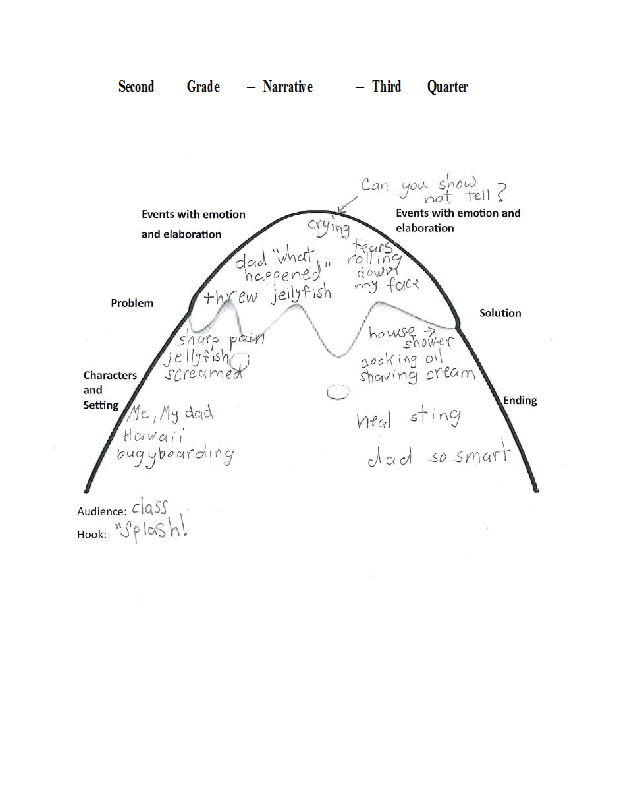 Second Grade – Narrative – Third Quarter
Can you show
not tell?
Events with emotion
and elaboration
Events with emotion and
elaboration
crying
dad "what
happened"
threw jellyfish
tears
rolling
down
my face
Problem
Solution
sharp pain
jellyfish
screamed
house →
shower
cocking oil
shaving cream
Characters
and
Setting
Ending
Me, My dad
Hawaii
bugyboarding
heal sting
dad so smart
Audience: class
Hook: "Splash!